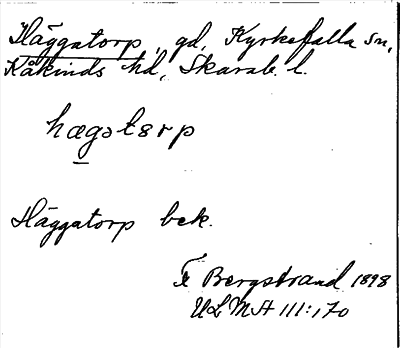 Häggatorp, gd, Kyrkefalla sn,
Kåkinds hd, Skarab. l.
hægətɞrp
Häggatorp bek.
F Bergstrand 1898
ULMA 111:170